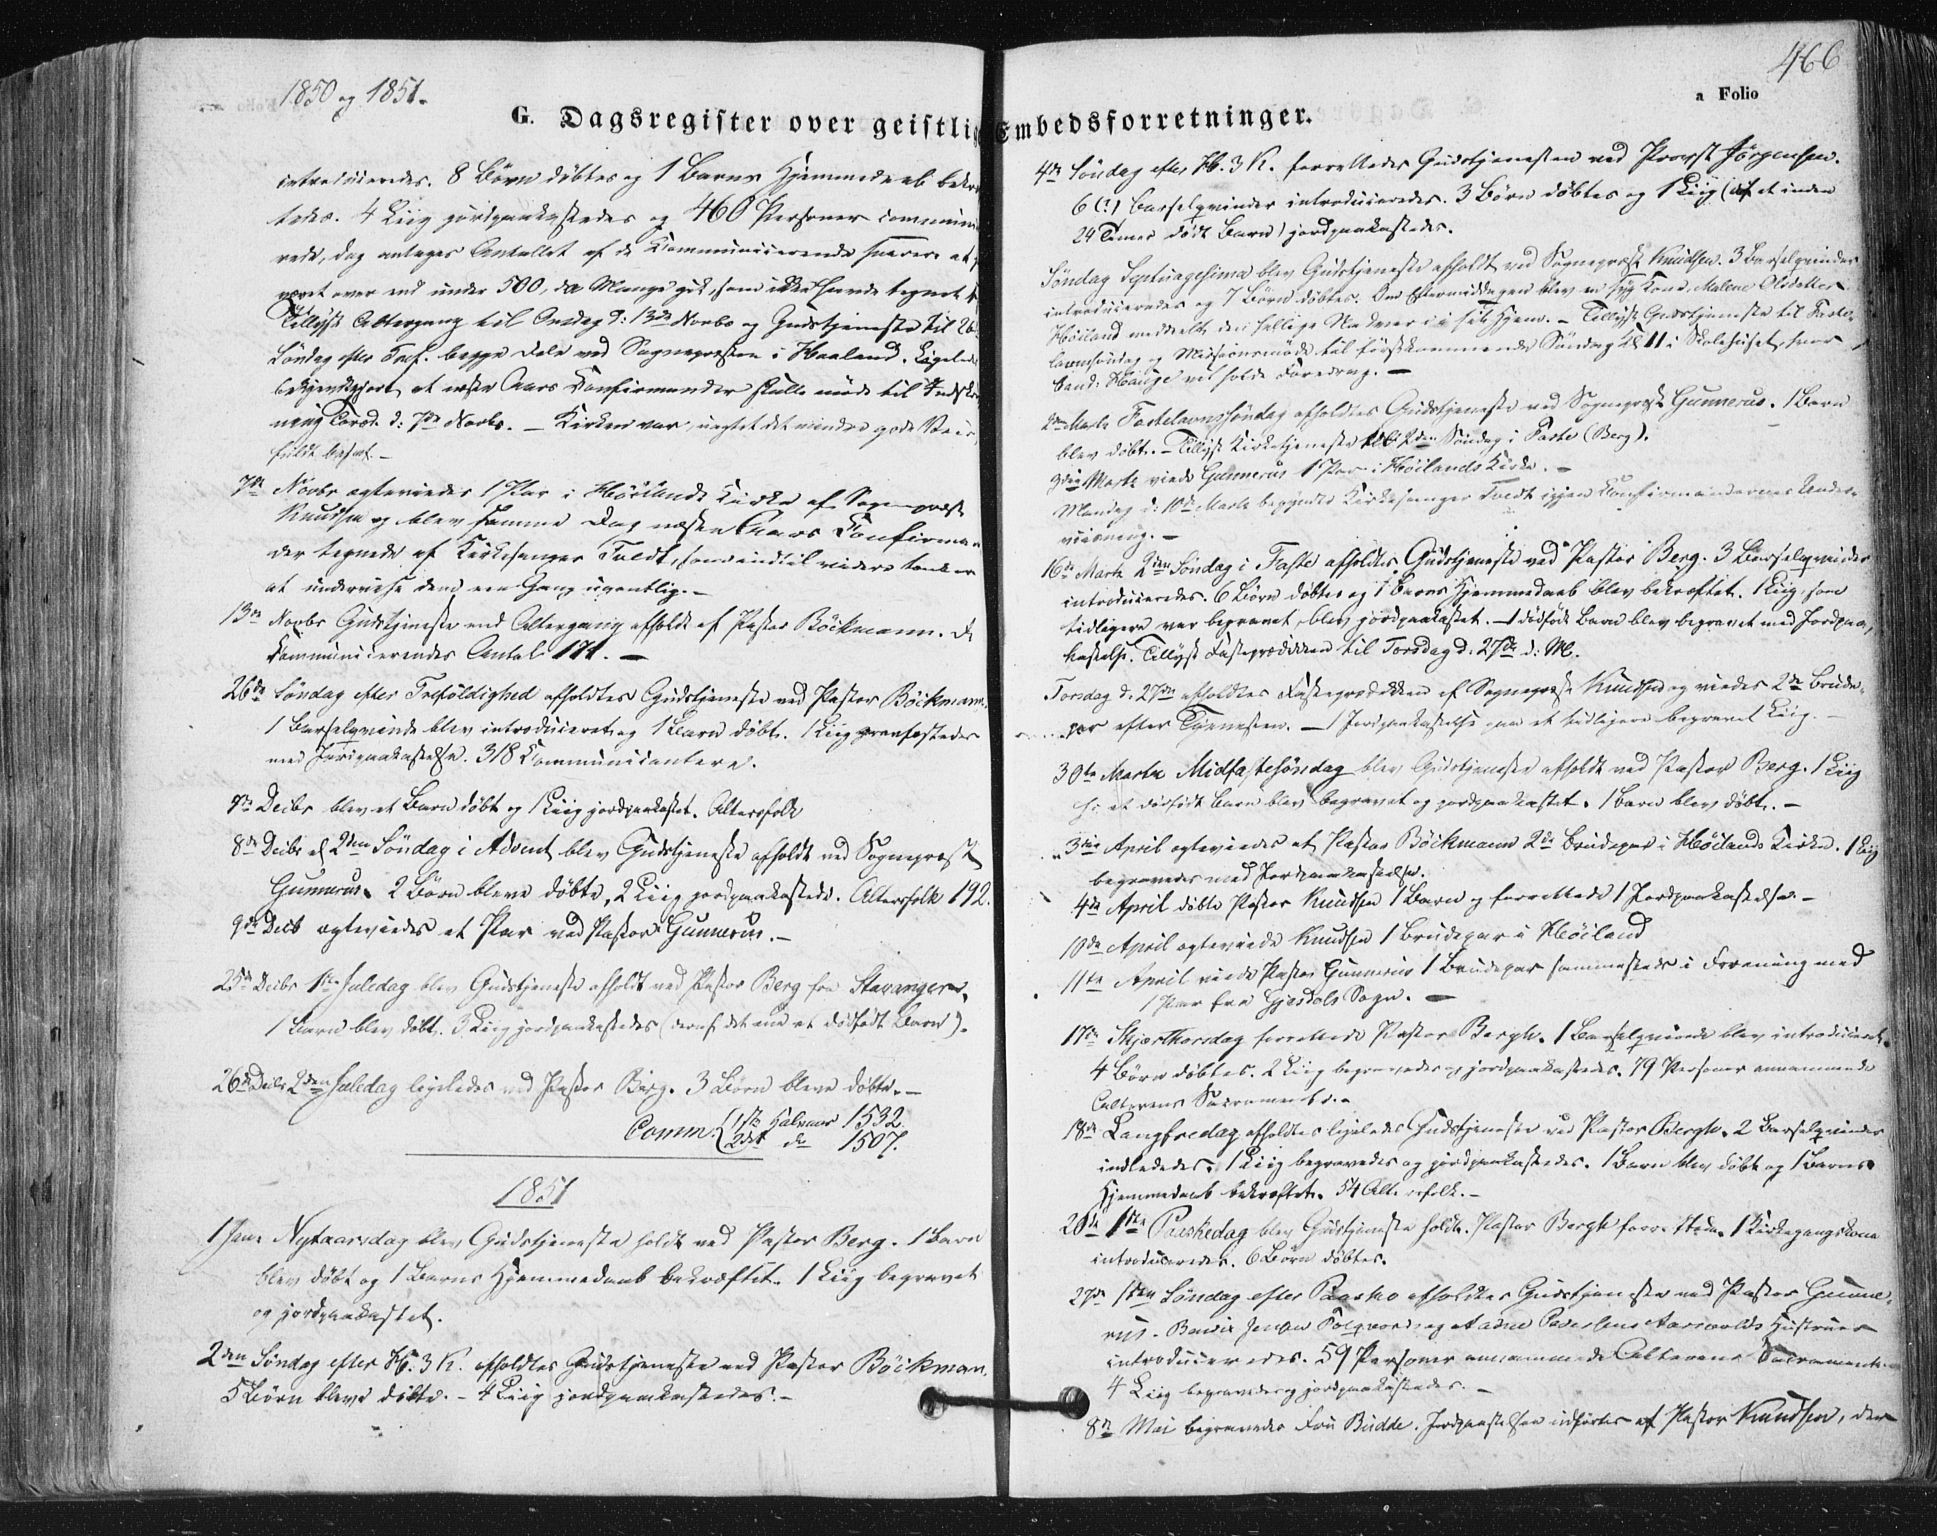 1850 og 1851.
466
a Folio
G. Dagsregister over geistlig Embedsforretninger.
introduceredes. 8 Børn døbtes og 1 Barns Hjemmedaab bekræf
tedes. 4 Liig jordpaakastedes og 460 Personer communi
rede, dog antages Antallet af de Kommunicerende snarere at
været over end under 500, da Mange gik, som ikke havde tegnet
Tillyst Altergang til Onsdag d: 13de Novbr og Gudstjeneste til 26
Søndag efter Tref. begge Dele ved Sognepræsten i Haaland. Ligeledes
bekjendtgjort, at næste Aars Konfirmander skulle møde til Indskriv
ning Torsd. d: 7de Novbr. – Kirken var, uagtet det mindre gode Veir,
fuldt besat. –
7de Novbr ægteviedes 1 Par i Høilands Kirke af Sognepræst
Knudsen og blev samme Dag næste Aars Konfirman
der tegnede af Kirkesanger Tvedt, som indtil videre tænker
at undervise dem een Gang ugentlig. –
13de Novbr Gudstjeneste med Altergang afholdt af Pastor Böckmann. De
Kommunicerendes Antal 171. –
26de Søndag efter Trefoldighed afholdtes Gudstjeneste ved Pastor Böckmann.
1 Barselqvinde blev introduceret og 1 Barn døbt. 1 Liig
med Jordpaakastelse. 318 Communicantere.
Decbr blev et Barn døbt og 1 Liig jordpaakastet. Altersfolk
8de Decbr 2den Søndag i Advent blev Gudstjeneste afholdt ved Sognepræst
Gunnerus. 2 Børn bleve døbte, 2 Liig jordpaakastede. Altersfolk 192.
9de Decb ægteviedes et Par ved Pastor Gunnerus. –
25de Decbr 1ste Juledag blev Gudstjeneste afholdt ved Pastor Berg fra Stavanger.
1 Barn blev døbt. 3 Liig jordpaakastedes (deraf det ene et dødfødt Barn).
26de Decbr 2den Juledag ligeledes ved Pastor Berg. 3 Børn bleve døbte. –
Comm: 1ste Halvaar 1532.
2det do 1507.
1851
1 Jan. Nytaarsdag blev Gudstjeneste holdt ved Pastor Berg. 1 Barn
blev døbt og 1 Barns Hjemmedaab bekræftet. 1 Liig begravet
og jordpaakastet.
2den Søndag efter H. 3 K. afholdtes Gudstjeneste ved Pastor Böckman.
5 Børn bleve døbte. – 4 Liig jordpaakastedes. –
4de Søndag efter H. 3 K. forrettedes Gudstjenesten ved Provst Jörgensen.
6 (?) Barselqvinder introduceredes. 3 Børn døbtes og 1 Liig (af et inden
24 Timer født Barn) jordpaakastedes.
Søndag Septuagesima blev Gudstjeneste afholdt ved Sognepræst Knudsen. 3 Barselqvinder
introduceredes og 7 Børn døbtes. Om Eftermiddagen blev en syg Kone, Malene Olsdatter
Høiland meddeelt den hellige Nadvere i sit Hjem. – Tillyst Gudstjeneste til Faste-
lavnssøndag og Missionsmøde til førstkommende Søndag Kl 11 i Skolehuset, hvor
Cand: Hauge vil holde Foredrag. –
2den Marts Fastelavnssøndag afholdtes Gudstjeneste ved Sognepræst Gunnerus. 1 Barn
blev døbt. – Tillyst Kirketjeneste til 2den Søndag i Faste (Berg).
3die Marts viede Gunnerus 1 Par i Høilands Kirke. –
Mandag d: 10de Marts begyndte Kirkesanger Tvedt igjen Konfirmandernes Under-
viisning. –
16de Marts 2den Søndag i Faste afholdtes Gudstjeneste ved Pastor Berg. 3 Barselqvinder
introduceredes. 6 Børn døbtes og 1 Barns Hjemmedaab blev bekræftet. 1 Liig, som
tidligere var begravet, blev jordpaakastet. – 1 dødfødt Barn blev begravet med Jordpaa-
kastelse. Tillyst Fasteprædiken til Torsdag d: 27de d: M.
Torsdag d. 27de afholdtes Fasteprædiken af Sognepræst Knudsen og viedes 2de Brude-
par efter Tjenesten. – 1 Jordpaakastelse paa et tidligere begravet Liig. –
30te Marts Midfastesøndag blev Gudstjeneste afholdt ved Pastor Berg. 1 Liig
et dødfødt Barn blev begravet og jordpaakastet. 1 Barn blev døbt. –
3die April ægteviedes af Pastor Böckmann 2de Brudepar i Høilands Kirke. 1 Liig
begravedes med Jordpaakastelse.
4de April døbte Pastor Knudsen 1 Barn og forrettede 1 Jordpaakastelse. –
10de April ægteviede Knudsen 1 Brudepar i Høiland
11te April viede Pastor Gunnerus 1 Brudepar sammesteds i Forening med
1 Par fra Gjesdals Sogn. –
17de Skjærthorsdag forrettede Pastor Bergh. 1 Barselqvinde blev introduceret.
4 Børn døbtes. 2 Liig begravedes og jordpaakastedes. 79 Personer annammede
Alterens Sacramente. –
18de Langfredag afholdtes ligeledes Gudstjeneste ved Pastor Bergh. 2 Barselqvinder
indlededes. 1 Liig begravedes og jordpaakastedes. 1 Barn blev døbt og 1 Barns
Hjemmedaab bekræftet. 54 Altersfolk. –
20de 1ste Paaskedag blev Gudstjeneste holdt. Pastor Bergh forrettede. 1 Kirkegangskone
introduceredes. 6 Børn døbtes.
27de 1ste Søndag efter Paaske afholdtes Gudstjeneste ved Pastor Gunne-
rus. Jensen og Aadne Pedersens Hustruer
introduceredes. 59 Personer annammede Alterens Sacramente.
4 Liig begravedes og jordpaakastedes. –
8de Mai begravedes Fru Budde. Jordpaakastelsen udførtes af Pastor Knudsen, der